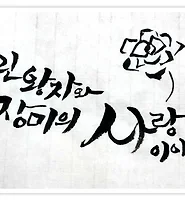 린 왕자와
장미의 사랑
이야